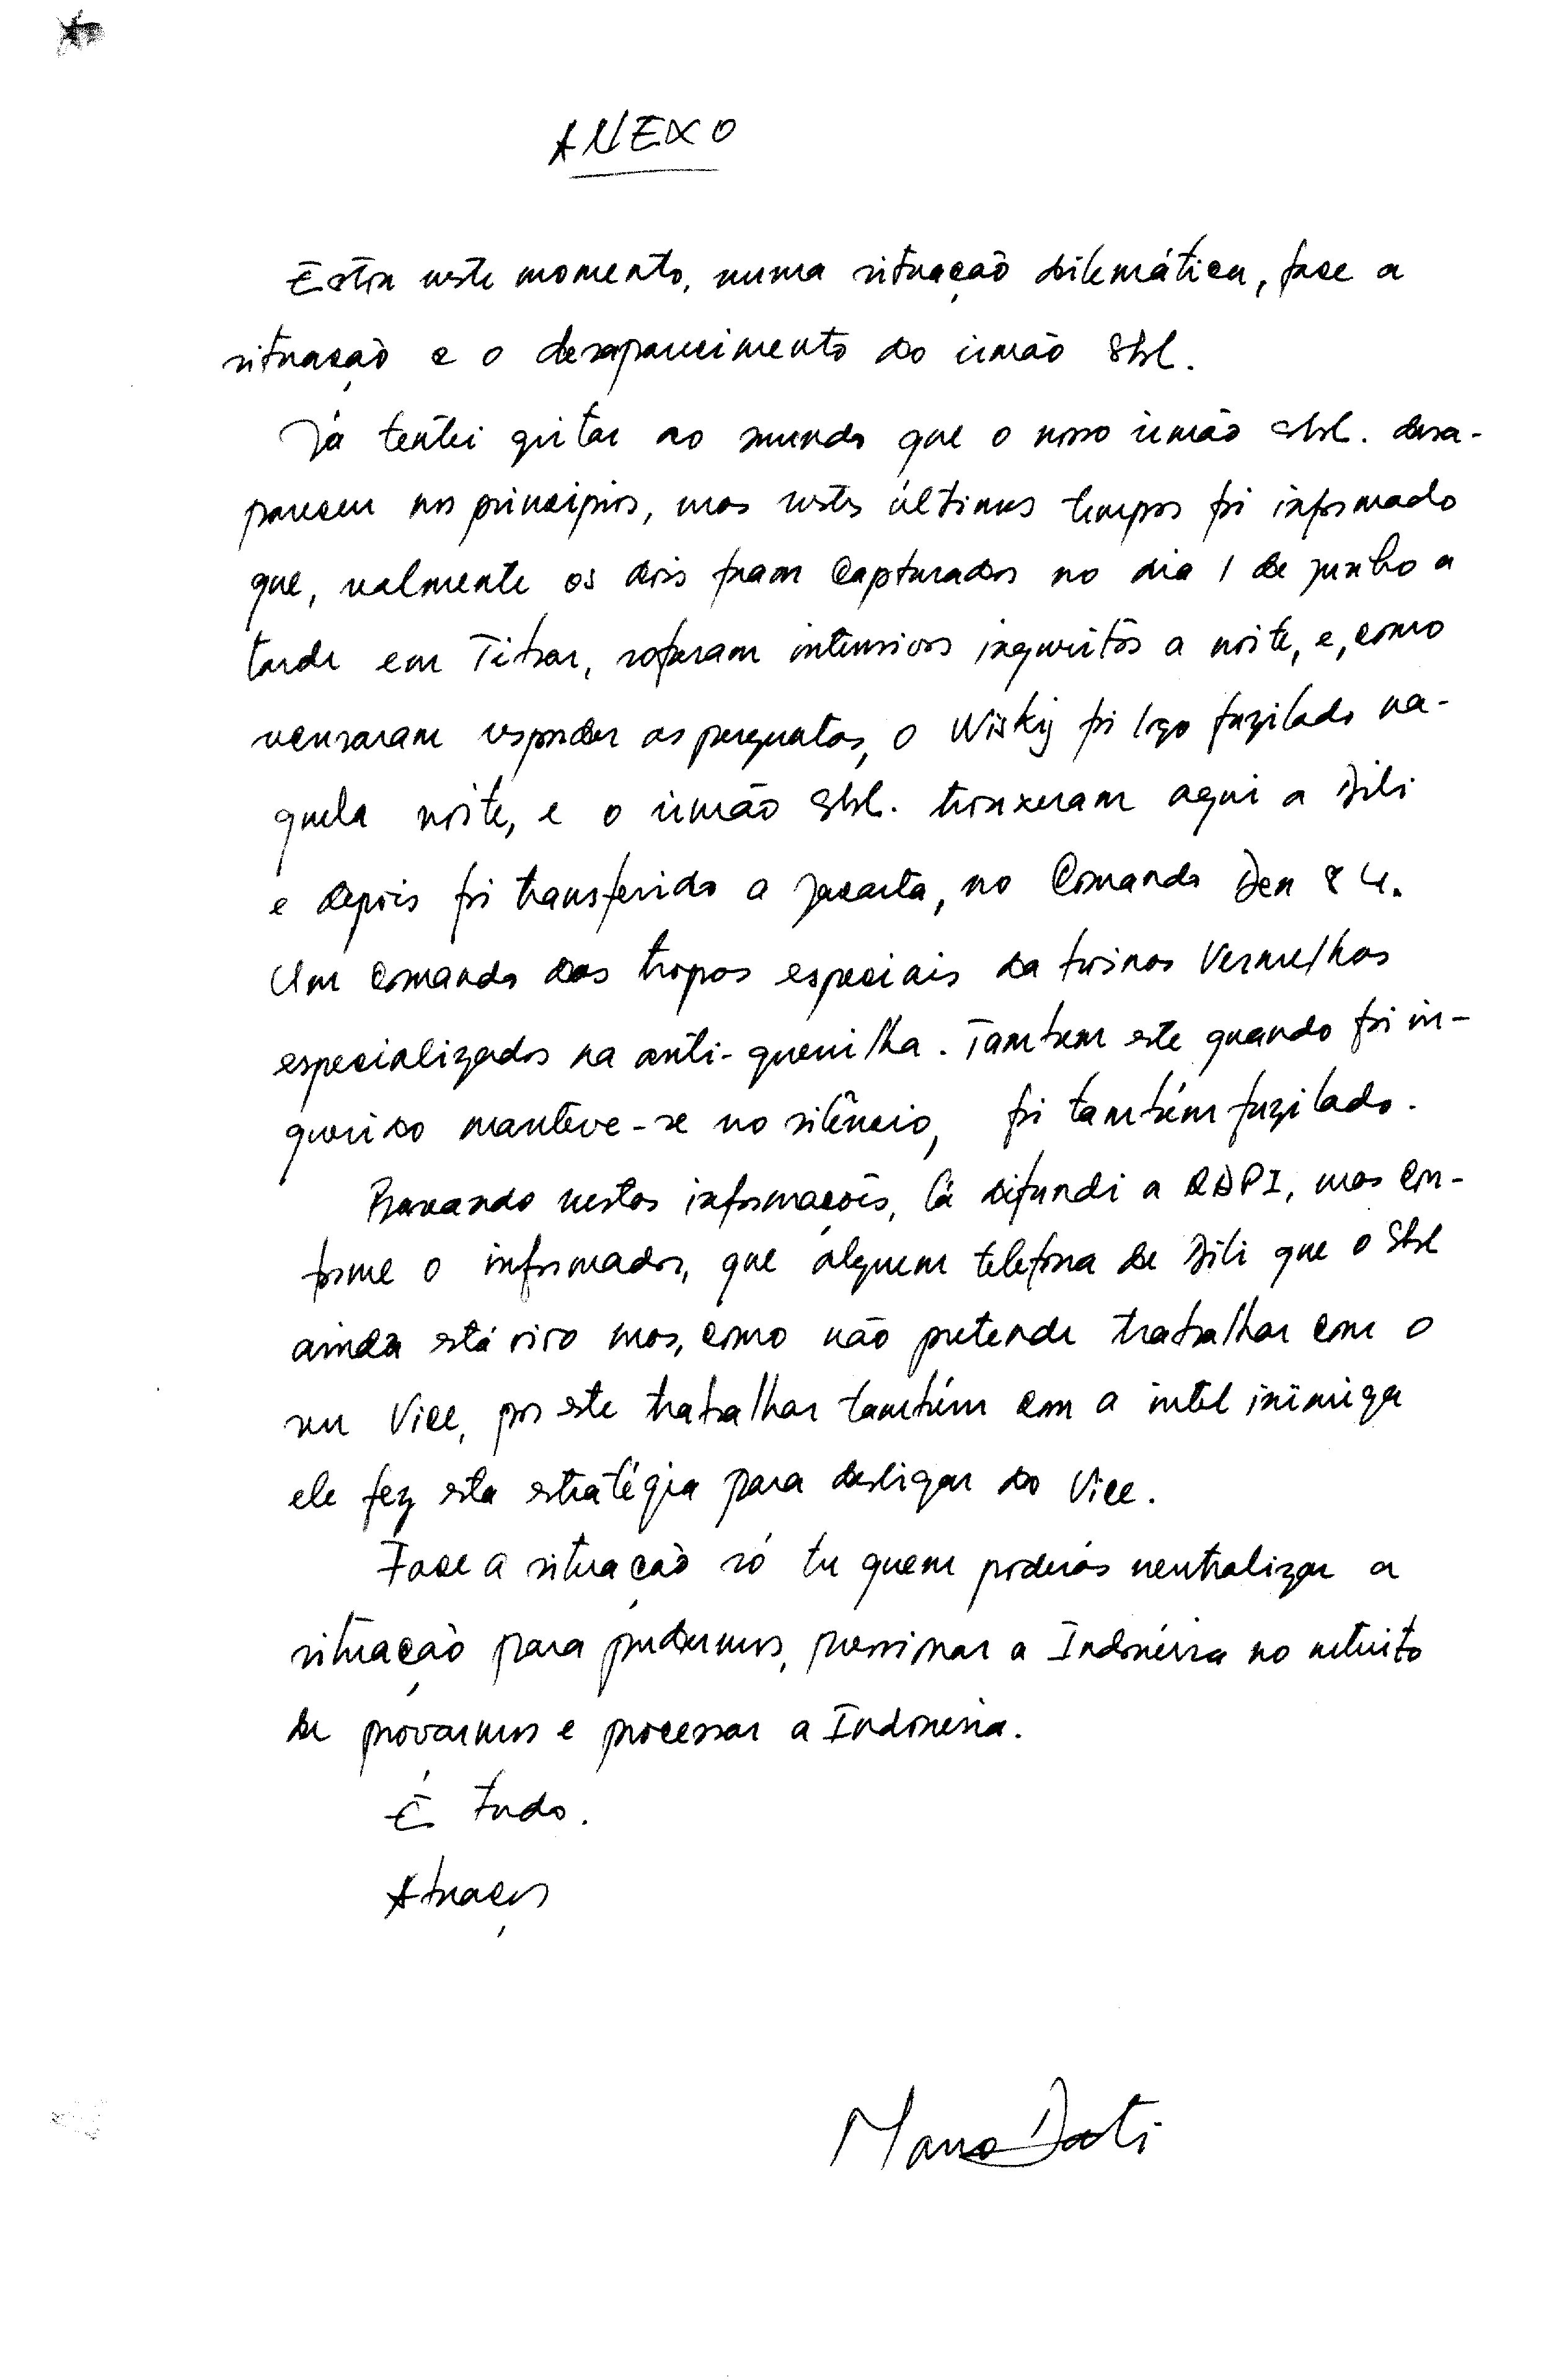 ANEXO
Estou neste momento, numa situação dilemática, face a
situação e o desaparecimento do irmão Sbl.
Já tentei gritar ao mundo que o nosso irmão Sbl. desa-
pareceu nos principios, mas nestes últimos tempos foi informado
que, realmente os dois foram capturados no dia 1 de junho a
tarde em Tibar, sofreram intensivos inqueritos a noite, e, como
recusaram responder as perguntas, o Wisky foi logo fuzilado na-
quela noite, e o irmão Sbl. trouxeram aqui a Dili
e depois foi transferido a Jacarta, no Comando Den 84.
Um comando das tropas especiais da boinas Vermelhas
especializados na anti-guerrilha. Tambem este quando foi in-
querido manteve-se no silêncio, foi também fuzilado.
Baseando nestas informações, lá difundi a RDPI, mas con-
forme o informador, que álguem telefona de Dili que o Sbl
ainda está vivo mas, como não pretende trabalhar com o
seu Vice, por este trabalhar também com a intel inimiga
ele fez esta estratégia para desligar do Vice.
Face a situação só tu quem poderás neutralizar a
situação para pudermos, pressionar a Indonésia no intuito
de próvarmos e processar a Indonesia.
É tudo.
Abraços
Mano Dati